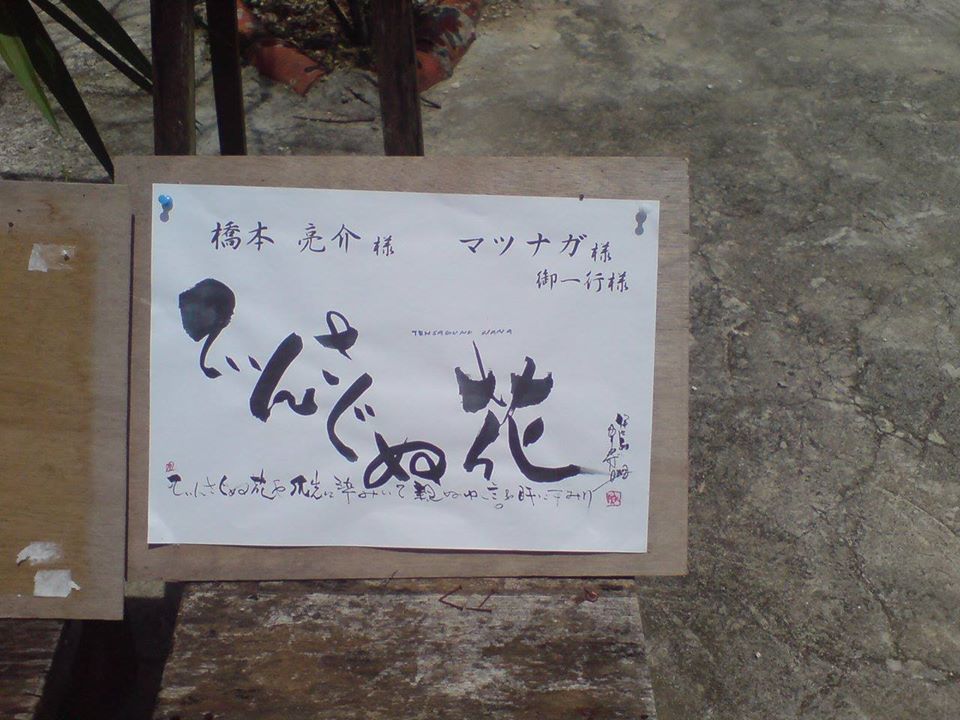 橋本 亮介 様
マツナガ様
御一行様
TENSAGUNU HANA
てぃんさぐぬ花
てぃんさぐぬ花や爪先に染みいて親ぬゆし言や肝に染みり